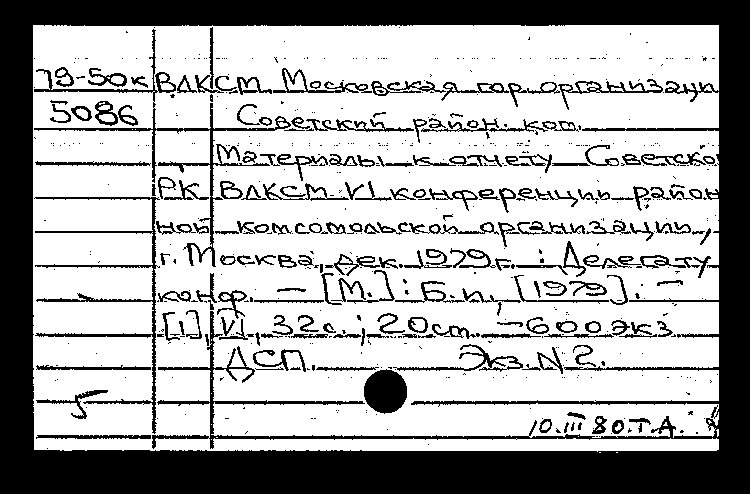 79-50к ВЛКСМ. Московская гор. организаци
5086 Советский район. ком.
Материалы к отчету Советско
РК ВЛКСМ VI конференции район
ной комсомольской организации,
г. Москва, дек. 1979г. : Делегату
конф. — [М.] : Б.и., [1979]. —
[1], VI, 32с. ; 20см. — 600экз
ДСП. Экз. N 2.
5
10.III 80.Т.А.